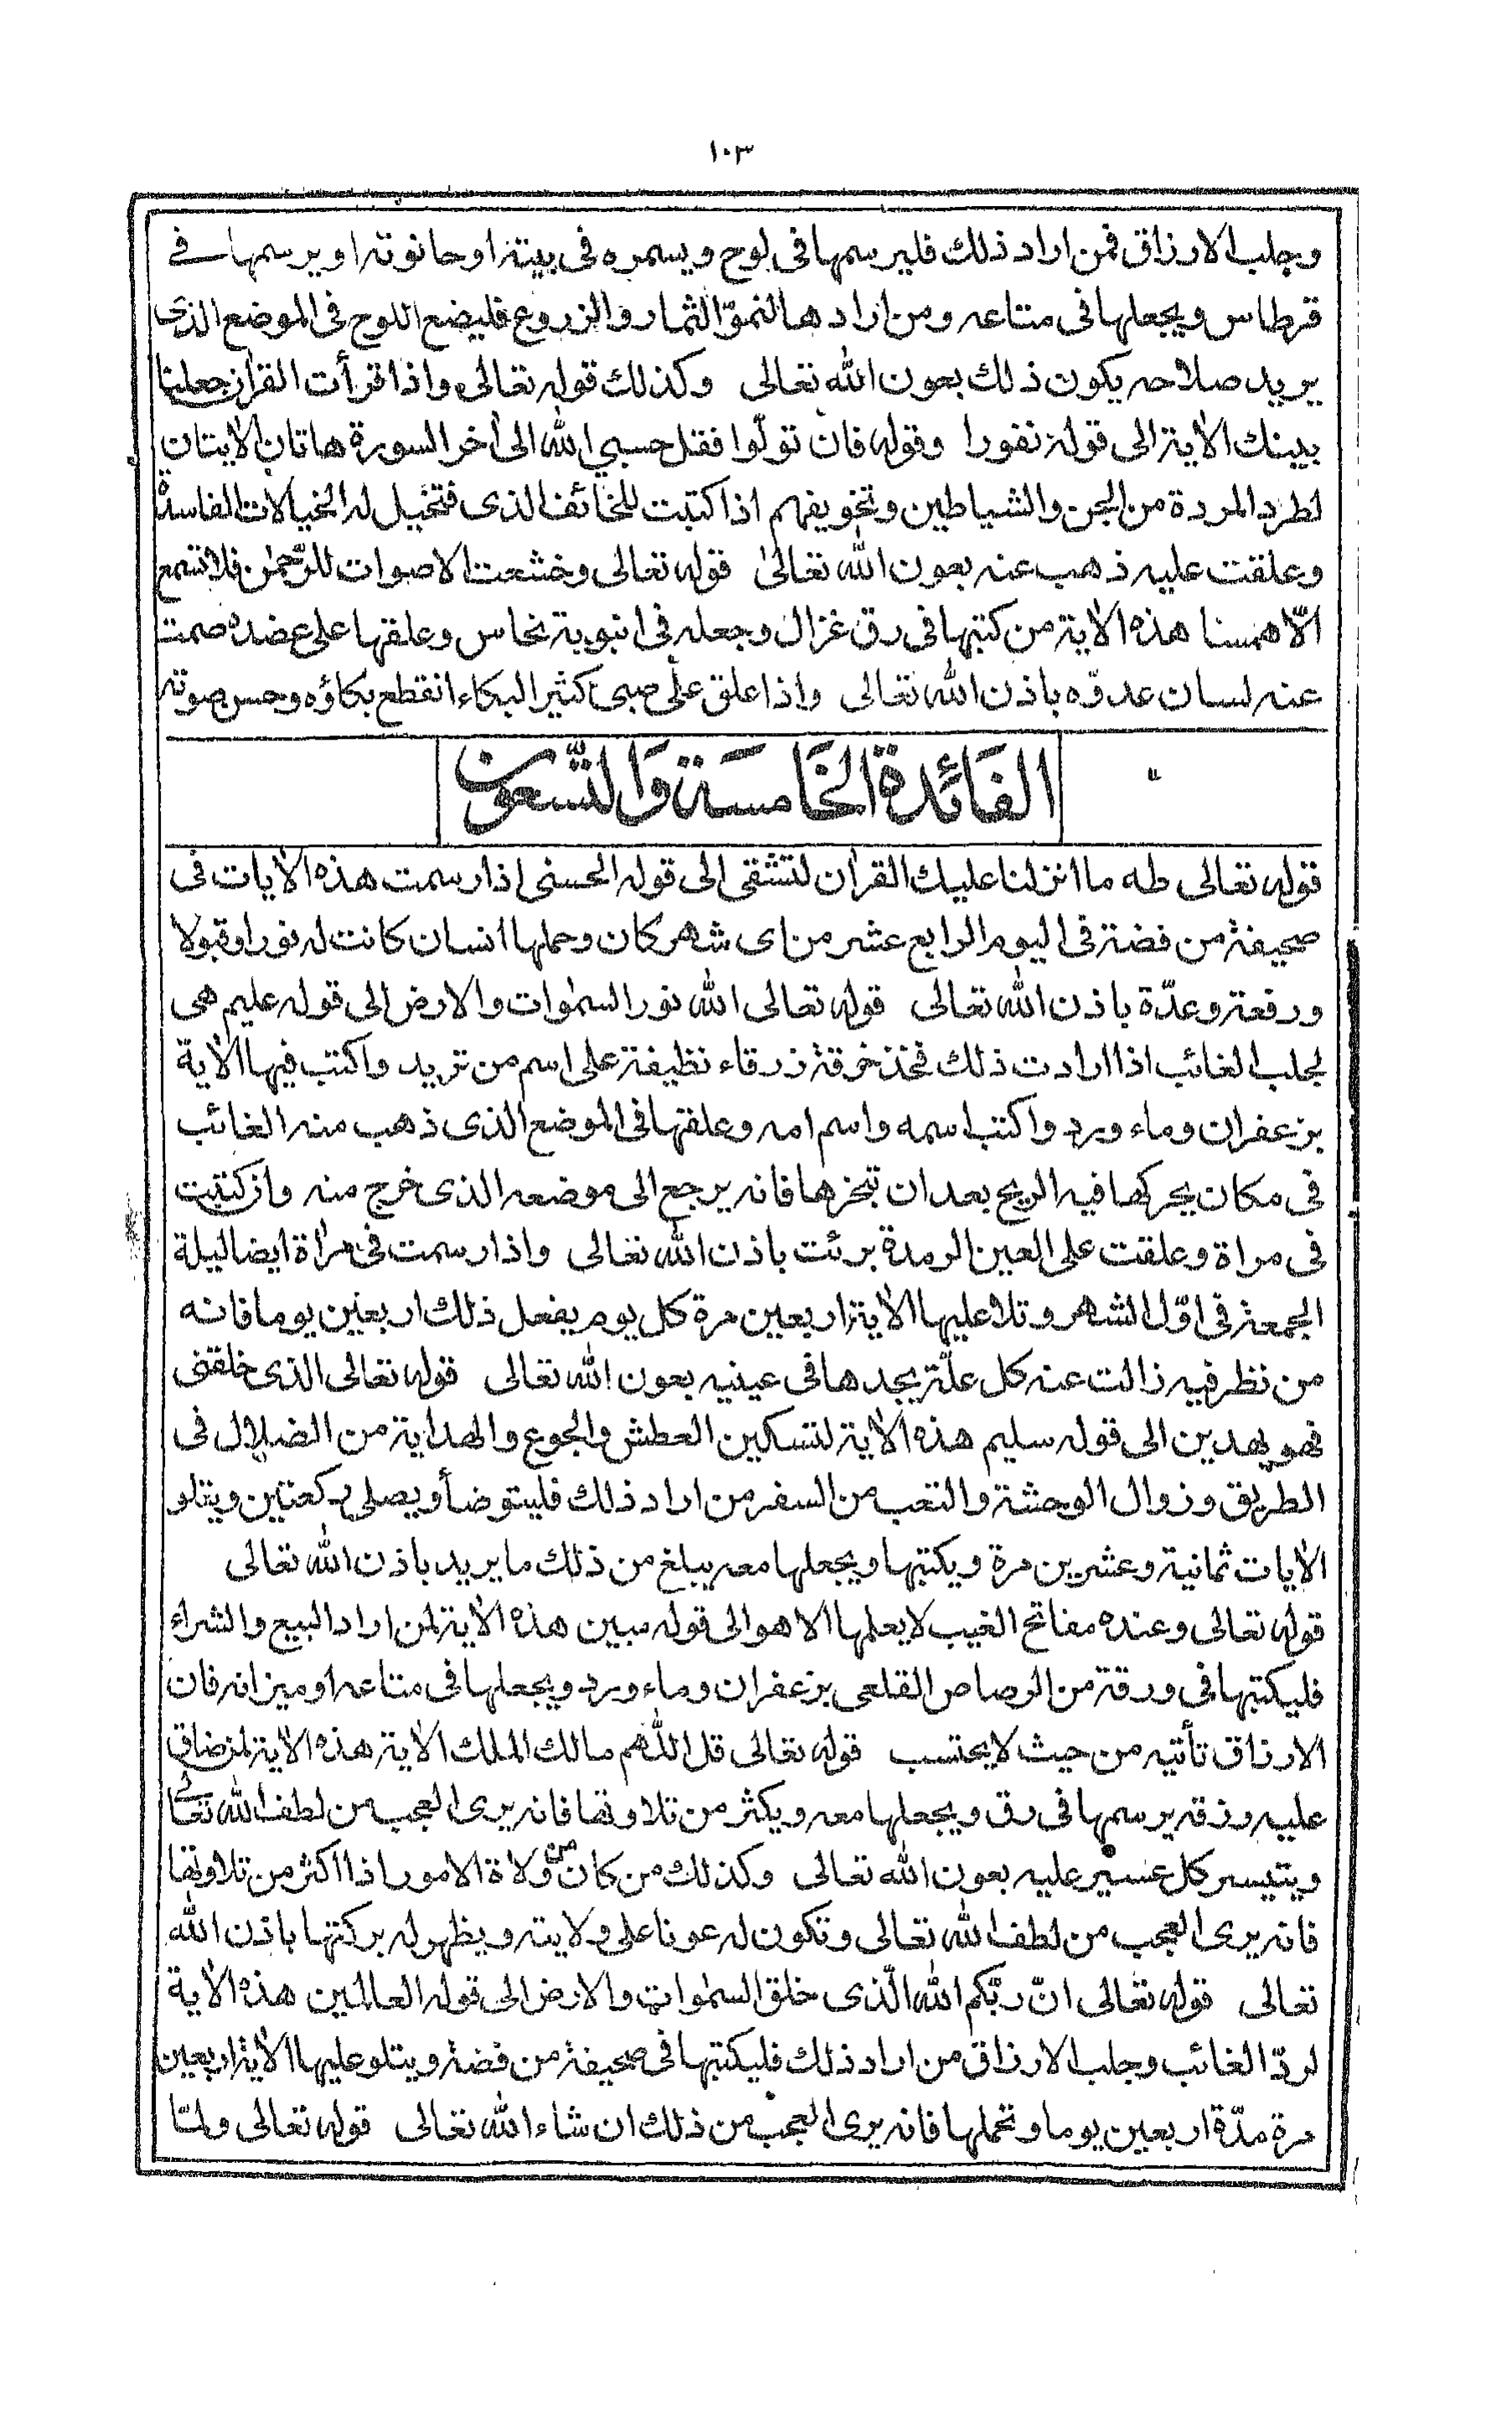 ١٠٣
وجلب الارزاق فمن اراد ذلك فليرسمها فى لوح ويسمره فى بيته او حانوته او يرسمها فى
قرطاس ويجعلها فى متاعه ومن اراد هالنموّ الثمار والزروع فليضع اللوح فى الموضع الذى
يريد صلاحه يكون ذلك بعون الله تعالى وكذلك قوله تعالى واذا قرأت القران جعلنا
بينك الاية الى قوله نفورا وقوله فان تولّوا فقل حسبي الله الى اخر السورة هاتان الايتان
لطرد المردة من الجن والشياطين وتخويفهم اذا كتبت للخائف الذى فتخيل له الخيالات الفاسدة
وعلقت عليه ذهب عنه بعون الله تعالى قوله تعالى وخشعت الاصوات للرّحمٰن فلا تسمع
الّا همسا هذه الاية من كتبها فى رق غزال وجعله فى انبوبة نحاس وعلقها على عضده صمت
عنه لسان عدوّه باذن الله تعالى واذا علق على صبى كثير البكاء انقطع بكاؤه وحسن صوته
الفَائدة الخَامسَة وَالتّسعون
قوله تعالى طه ما انزلنا عليك القران لتشقى الى قوله الحسنى اذا رسمت هذه الايات فى
صحيفة من فضة فى اليوم الرابع عشر من اى شهر كان وحملها انسان كانت له نورا وقبولا
ورفعة وعدّة باذن الله تعالى قوله تعالى الله نور السمٰوات والارض الى قوله عليم هى
لجلب الغائب اذا اردت ذلك فخذ خرقة زرقاء نظيفة على اسم من تريد واكتب فيها الاية
بزعفران وماء ورد واكتب اسمه واسم امه وعلقها فى الموضع الذى ذهب منه الغائب
فى مكان يحركها فيه الريح بعد ان تبخرها فانه يرجع الى موضعه الذى خرج منه وان كتبت
فى مراة وعلقت على العين الرمدة برئت باذن الله تعالى واذا رسمت فى مراة ايضا ليلة
الجمعة فى اوّل الشهر وتلا عليها الاية اربعين مرة كل يوم يفعل ذلك اربعين يوما فانه
من نظر فيه زالت عنه كل علّة يجدها فى عينيه بعون الله تعالى قوله تعالى الذى خلقنى
فهو يهدين الى قوله سليم هذه الاية لتسكين العطش والجوع والهداية من الضلال فى
الطريق وزوال الوحشة والتعب من السفر من اراد ذلك فليتوضأ ويصلى ركعتين ويتلو
الايات ثمانية وعشرين مرة ويكتبها ويجعلها معه يبلغ من ذلك ما يريد باذن الله تعالى
قوله تعالى وعنده مفاتح الغيب لا يعلمها الا هو الى قوله مبين هذه الاية لمن اراد البيع والشراء
فليكتبها فى ورقة من الرصاص القلعى بزعفران وماء ورد ويجعلها فى متاعه او ميزانه فان
الارزاق تأتيه من حيث لا يحتسب قوله تعالى قل اللهم مالك الملك الاية هذه الاية لمن ضاق
عليه رزقه يرسمها فى رق ويجعلها معه ويكثر من تلاوتها فانه يرى العجب من لطف الله تعالى
ويتيسر كل عسير عليه بعون الله تعالى وكذلك من كان من ولاة الامور اذا اكثر من تلاوتها
فانه يرى العجب من لطف الله تعالى وتكون له عونا على ولايته ويظهر له بركتها باذن الله
تعالى قوله تعالى انّ ربّكم الله الّذى خلق السمٰوات والارض الى قوله العالمين هذه الاية
لردّ الغائب وجلب الارزاق من اراد ذلك فليكتبها فى صحيفة من فضة ويتلو عليها الاية اربعين
مرة مدّة اربعين يوما وتحملها فانه يرى العجب من ذلك ان شاء الله تعالى قوله تعالى ولمّا